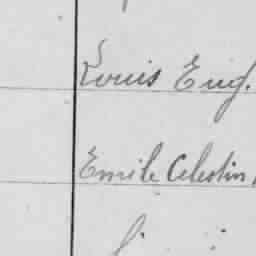 Louis Eug.
Emile Celestin